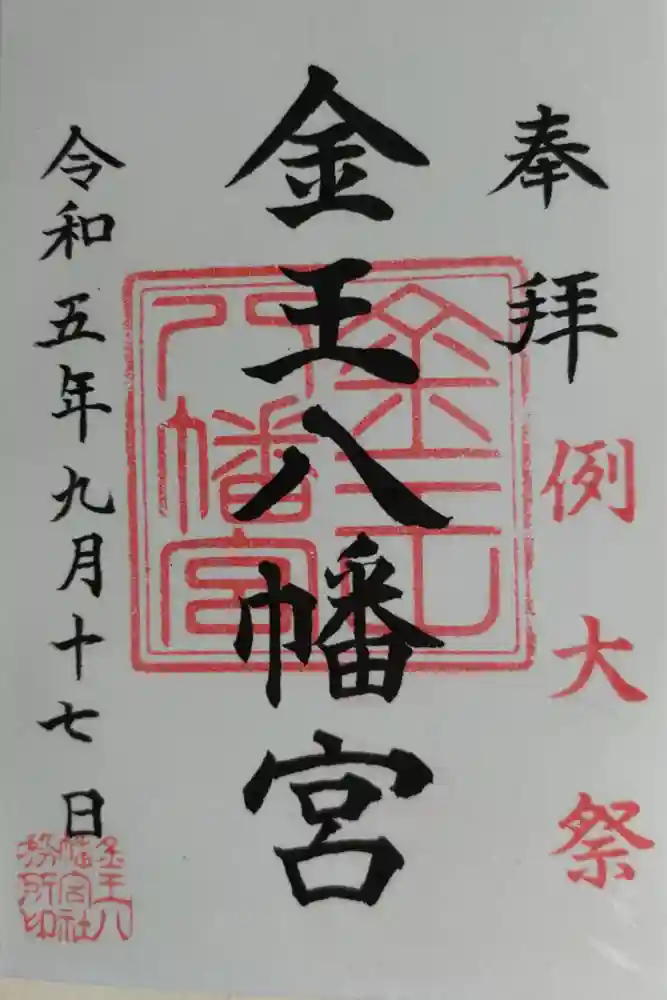 奉拝
例大祭
金王八幡宮
金王八幡宮
令和五年九月十七日
金王八
幡宮社
務所印